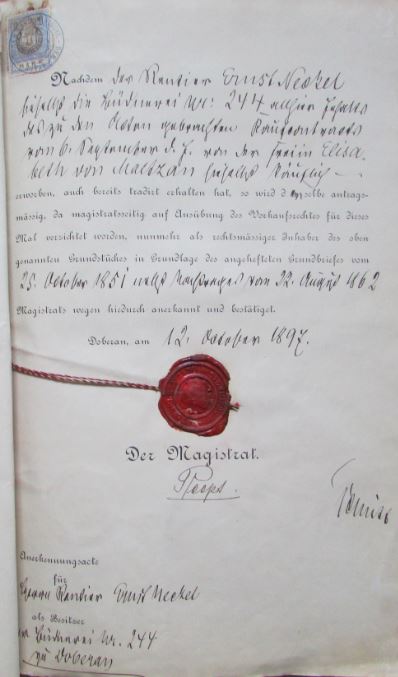 Nachdem der Rentier Ernst Neckel
hieselbst die Büdnerei Nr: 244 allhier Inhalts
des zu den Acten gebrachten Kaufcontracts
vom 6. September d. J. von der Freiin Elisa-
beth von Maltzan hieselbst käuflich
erworben, auch bereits tradirt erhalten hat, so wird derselbe antrags-
mässig, da magistratsseitig auf Ausübung des Vorkaufsrechtes für dieses
Mal verzichtet worden, nunmehr als rechtsmässiger Inhaber des oben
genannten Grundstückes in Grundlage des angehefteten Grundbriefes vom
25. October 1851 nebst Nachtrages vom August 1862
Magistrats wegen hiedurch anerkannt und bestätiget.
Doberan, am 12. October 1897.
Der Magistrat.
Anerkennungsacte
für
Herrn Rentier Ernst Neckel
als Besitzer
der Büdnerei Nr. 244
zu Doberan